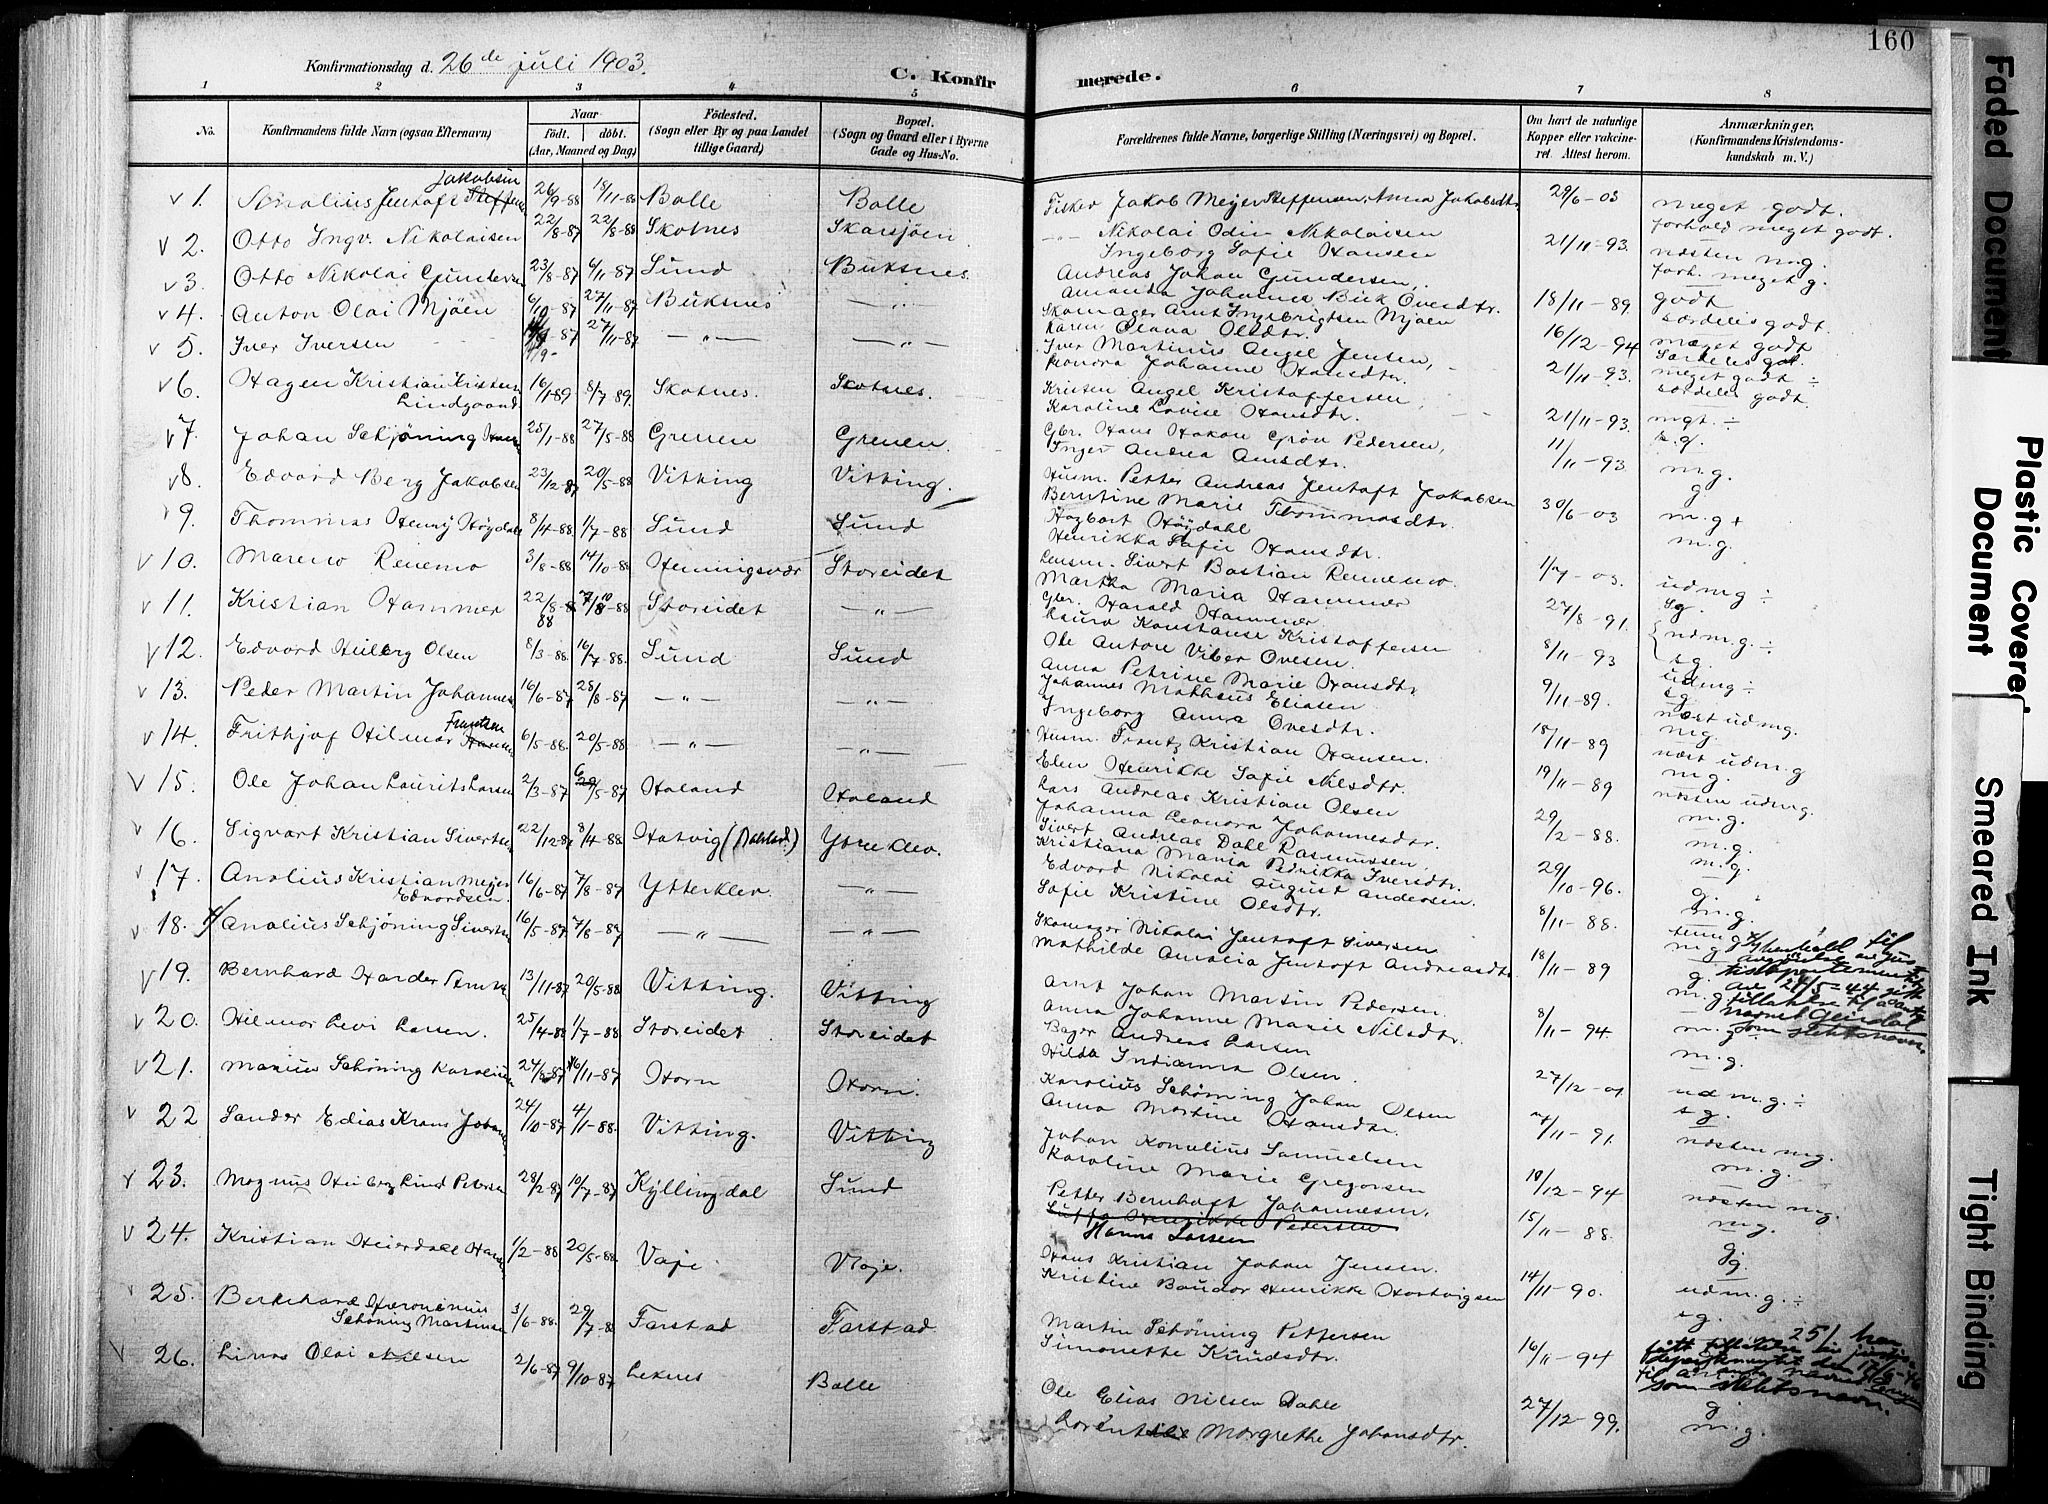 160
Konfirmationsdag d. 26de juli 1903.
C. Konfirmerede.
1 2 3 4 5 6 7 8
No.
Konfirmandens fulde Navn (ogsaa Efternavn)
Naar
födt. döbt.
(Aar, Maaned og Dag)
Födested.
(Sogn eller By og paa Landet
tillige Gaard)
Bopæl.
(Sogn og Gaard eller i Byerne
Gade og Hus-No.
Forældrenes fulde Navne, borgerlige Stilling (Næringsvei) og Bopæl.
Om havt de naturlige
Kopper eller vakcine-
ret. Attest herom.
Anmærkninger.
(Konfirmandens Kristendoms-
kundskab m. V.)
1. Jentoft Jakobsen 26/9-88 Balle Balle Fisker Jakob Meyer Steffensen, Anna Jakobsdtr. 29/6-03 meget godt.
2. Otto Ingv. Nikolaisen 22/8-87 22/8-88 Skotnes Skarsjöen Nikolai Odin Nikolaisen 21/11-93 forhold meget godt.
Ingeborg Sofie Hansen næsten m.g.
3. Otto Nikolai Gundersen 23/8-87 6/11-87 Sund Buksnes Andreas Johan Gundersen, forh. meget g.
Amanda Johanna Buck Ovesdtr. 18/11-89 godt
4. Anton Olai Mjöen 6/10-87 27/11-87 Buksnes —„— Skomager Arnt Ingebrigtsen Mjöen særdeles godt.
Karen Olava Olsdtr. 16/12-94 meget godt
5. Iver Iversen 27/11-87 —„— —„— Iver Martinus Angel Jensen, Særdeles godt.
Leonora Johanne Hansdtr. 21/11-93. meget godt ÷
6. Hagen Kristian Kristensen 16/1-89 8/7-89. Skotnes. Skotnes. Kristen Angel Kristoffersen, særdeles godt.
Lindgaard. Karoline Lovise Hansdtr. 21/11-93. mgt. ÷
7. Johan Schjöning Hansen 25/1-88 27/5-88 Grenen Grenen. Gbr. Hans Hakon Grön Pedersen,
Inger Andrea Amsdtr. 11/11-93 m.g.
8. Edvard Berg Jakobsen 23/12-87 20/5-88 Vitting Vitting. Husm. Petter Andreas Jentoft Jakobsen g
Berntine Marie Thommasdtr. 30/6-03 m.g+
9. Thommas Henry Höydahl 8/4-88 1/7-88 Sund Sund Hagbart Höydahl m.g.
Henrikka Sofie Hansdtr.
10. Mareno Renemo 3/8-88 14/10-88 Henningsvær Storeidet Lensm. Sivert Bastian Rennemo. 1/7-03.
Martha Maria Hammer udmg ÷
11. Kristian Hammer 22/8-88 Storeidet —„— Gbr. Harald Hammer 27/8-91. Sg.
Laura Konstanse Kristoffersen udm.g. ÷
12. Edvard Heiberg Olsen 8/3-88. 16/7-88. Sund Sund Ole Anton Viber Ovesen. 8/11-93 sg.
Anna Petrine Marie Hansdtr. udmg ÷
13. Peder Martin Johannesen 16/6-87 28/8-87 —„— —„— Johannes Mathæus Eliasen 9/11-89. sg
Ingeborg Anna Ovesdtr. næst udmg.
14. Frithjof Hilmar Frantsen 6/5-88. 20/5-88 —„— —„— Husm. Frantz Kristian Hansen. 18/11-89 mg.
Elen Henrikke Sofie Nilsdtr. næst udm.g
15. Ole Johan Laurits Larsen 2/3-87 Haland Haland Lars Andreas Kristian Olsen 19/11-89 m.g.
Johanna Leonora Johannesdtr. næsten udmg.
16. Sigvart Kristian Sivertsen 22/12-87 8/4-88 Hatvig Ytreklev. Sivert Andreas Dahl Rasmussen 29/2-88. m.g.
Kristiana Maria Pedrikka Iversdtr. m.g.
17. Analius Kristian Meyer 16/6-87 7/8-87 Ytterklev. —„— Edvard Nikolai August Andersen. 29/10-96. m.g.
Edvardsen. Sofie Kristine Olsdtr. g.
18. Analius Schjöning Sivertsen 16/5-87 —„— —„— Skomager Nikolai Jentoft Siversen 8/11-88. m.g.
Mathilde Amalia Jentoft Andreasdtr.
19. Bernhard Harder 13/11-87 20/5-88 Vitting. Vitting Arnt Johan Martin Pedersen. 18/11-89 g.
Anna Johanne Marie Nilsdtr. m.g
av 27/5-44 gitt
tillatelse til å anta
navnet
som slektsnavn.
20. Hilmar Levi Larsen. 25/4-88 1/7-88 Storeidet Storeidet Bager Andreas Larsen 8/11-94. m.g.
Hilda Indianna Olsen. m.g.
21. Marius Schöning Karoliusen 24/8-87 Horn Horn. Karolius Schöning Johan Olsen 27/12-01 udm.g. ÷
Anna Martine Hansdtr. sg.
22 Sander Edias Krans 24/10-87 4/1-88. Vitting. Vitting Johan Konelius Samuelsen /11-91. næsten mg.
Karoline Marie Gregorsen m.g.
23. Magnus Heiberg Lind Petersen 28/2-87 10/7-87 Kyllingdal Sund Petter Bernhoft Johannesen. 18/12-94 næsten mg.
Henrikke Pedersen
Hanna Larsen mg.
24. Kristian Heierdahl Hansen 1/2-88 20/5-88. Vaje. Vaje. Hans Kristian Johan Jensen. 15/11-88. g.
Kristine Baudor Henrikke Hartvigsen g.
25. Bernhard Hieronimus 3/6-88. 29/7-88 Farstad Farstad Martin Schöning Pettersen 14/11-90. udm.g. ÷
Schöning Martinsen Simonette Knudsdtr. sg.
25/. har
fått tillatelse av
som slektsnavn.
26. Linas Olai Nilsen 2/6-87 9/10-87 Leknes Balle Ole Elias Nilsen Dahle 16/11-94 g.
Margrethe Johansdtr. 27/12-99. m.g.
Faded Document
Plastic Covered Document
Smeared Ink
Tight Binding